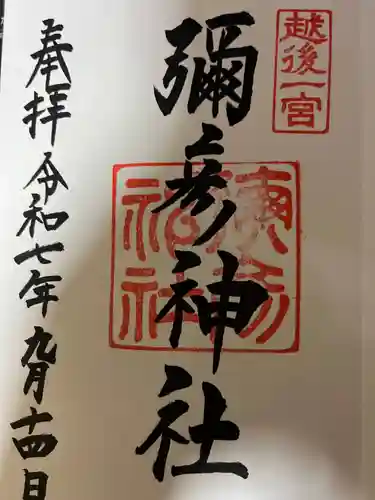 越後一宮
彌彦神社
奉拝令和七年九月十四日